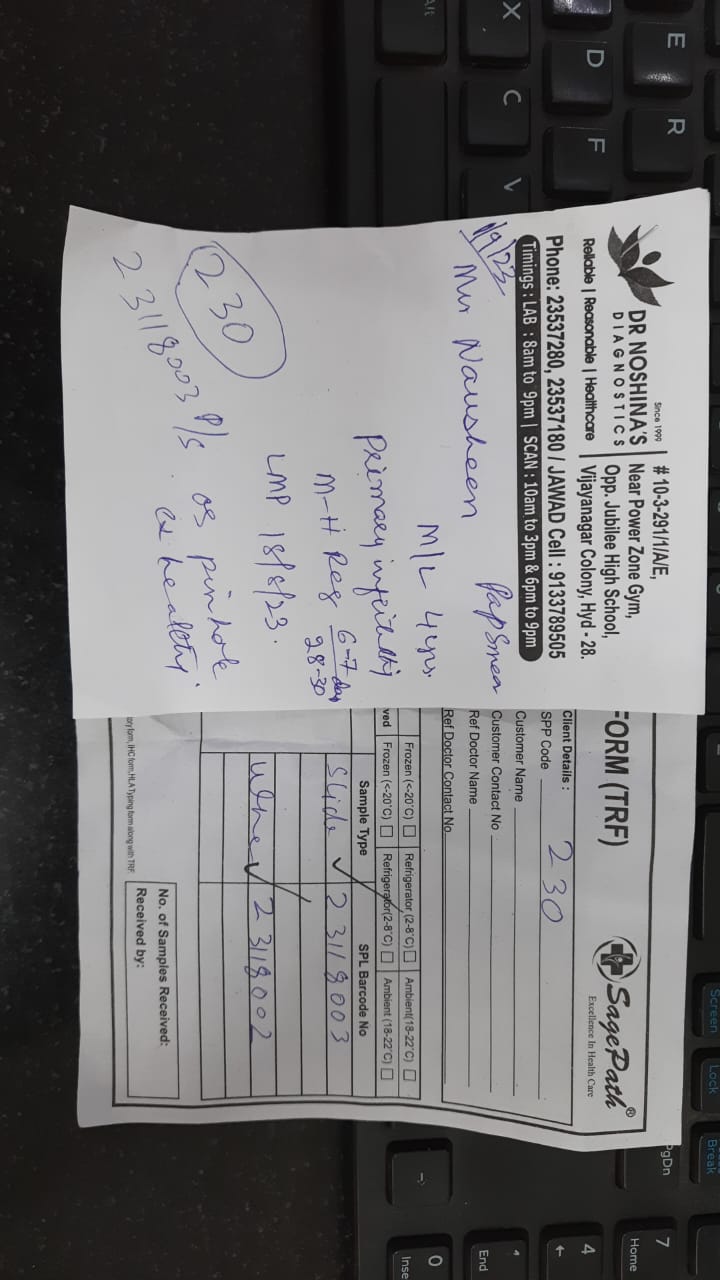 DR NOSHINA'S
DIAGNOSTICS
Since 1999
Reliable | Reasonable | Healthcare
# 10-3-291/1/A/E,
Near Power Zone Gym,
Opp. Jubilee High School,
Vijayanagar Colony, Hyd - 28.
Phone: 23537280, 23537180 / JAWAD Cell : 9133789505
Timings : LAB : 8am to 9pm | SCAN : 10am to 3pm & 6pm to 9pm
1/9/23
Mrs Nausheen Pap Smear
M/L 4 yrs.
Primary infertility
M-H Reg 6-7 day
28-30
LMP 18/8/23.
230
P/S os pinhole
cx healthy
23118003
FORM (TRF)
SagePath®
Excellence In Health Care
Client Details :
SPP Code 230
Customer Name
Customer Contact No
Ref Doctor Name
Ref Doctor Contact No
Frozen (<-20°C) Refrigerator (2-8°C) Ambient(18-22°C)
ved Frozen (<-20°C) Refrigerator(2-8°C) Ambient (18-22°C)
Sample Type SPL Barcode No
Slide ✓ 23118003
Urine ✓ 23118002
No. of Samples Received:
Received by:
ory form, IHC form, HLA Typing form along with TRF.
E R
D F
X C V
Alt
Screen
Lock
Break
PgDn
7
Home
4
←
1
End
0
Inse